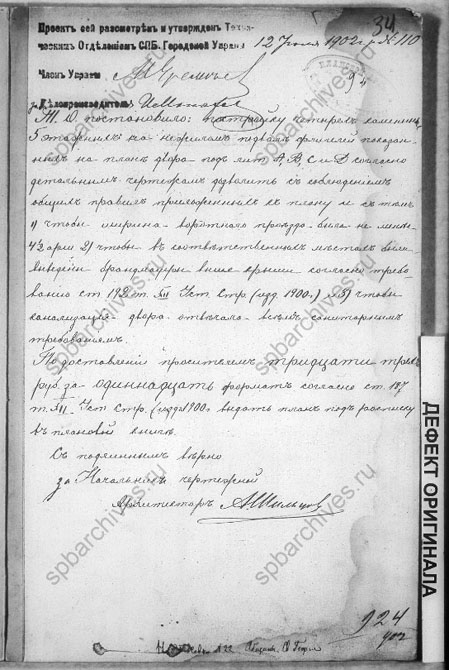 34
Проектъ сей разсмотрѣнъ и утвержденъ Техни-
ческимъ Отдѣленіемъ СПБ. Городской Управы 12 Іюля 1902 г. № 110
Членъ Управы М. Еремѣевъ
Дѣлопроизводитель
Т. О. постановило: постройку четырехъ каменныхъ
5 этажныхъ на подвалѣ флигелей показан
ныхъ на планѣ двора подъ лит А, В, С и D согласно
детальнымъ чертежамъ дозволить съ соблюденіемъ
общихъ правилъ приложенныхъ къ плану и съ тѣмъ
1) чтобы ширина воротнаго проѣзда была не менѣе
4½ арш 2) чтобы въ соотвѣтственныхъ мѣстахъ были
выведены брандмауры выше крыши согласно требо
ванію ст т. XII Уст. Стр. (изд. 1900 г.) и 3) чтобы
канализація двора отвѣчала всѣмъ санитарнымъ
требованіямъ.
По доставленіи просителемъ тридцати трехъ
руб. за одиннадцать форматъ согласно ст. 187
т. XII Уст. Стр. (изд. 1900 г. выдать планъ подъ росписку
въ плановой книгѣ.
Съ подлиннымъ вѣрно
за Начальникъ чертежной
Архитекторъ
924
902
spbarchives.ru
spbarchives.ru
spbarchives.ru
spbarchives.ru
spbarchives.ru
spbarchives.ru
ДЕФЕКТ ОРИГИНАЛА